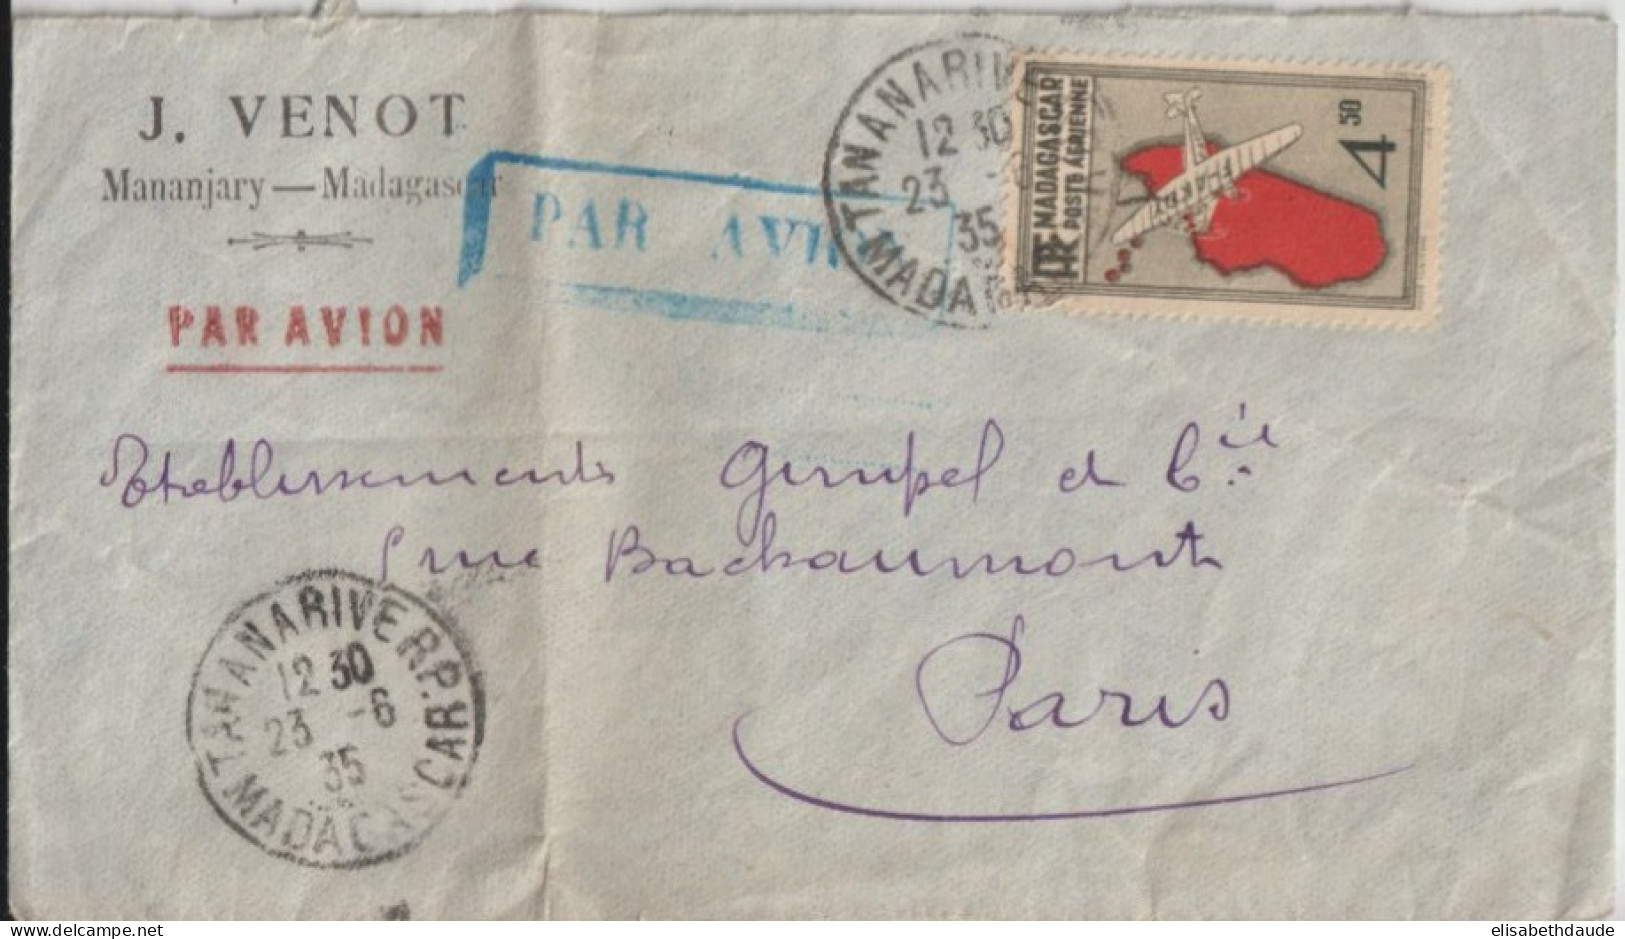 J. VENOT
Mananjary — Madagascar
PAR AVION
PAR AVI
TANANARIV
12 30
23 -
35
MADA
RF MADAGASCAR
POSTE AÉRIENNE
4 50
Etablissements Gimpel et Cie
rue Bachaumont
Paris
TANANARIVE R.P.
12 30
23 -6
35
MADAGASCAR
www.delcampe.net
elisabethdaude